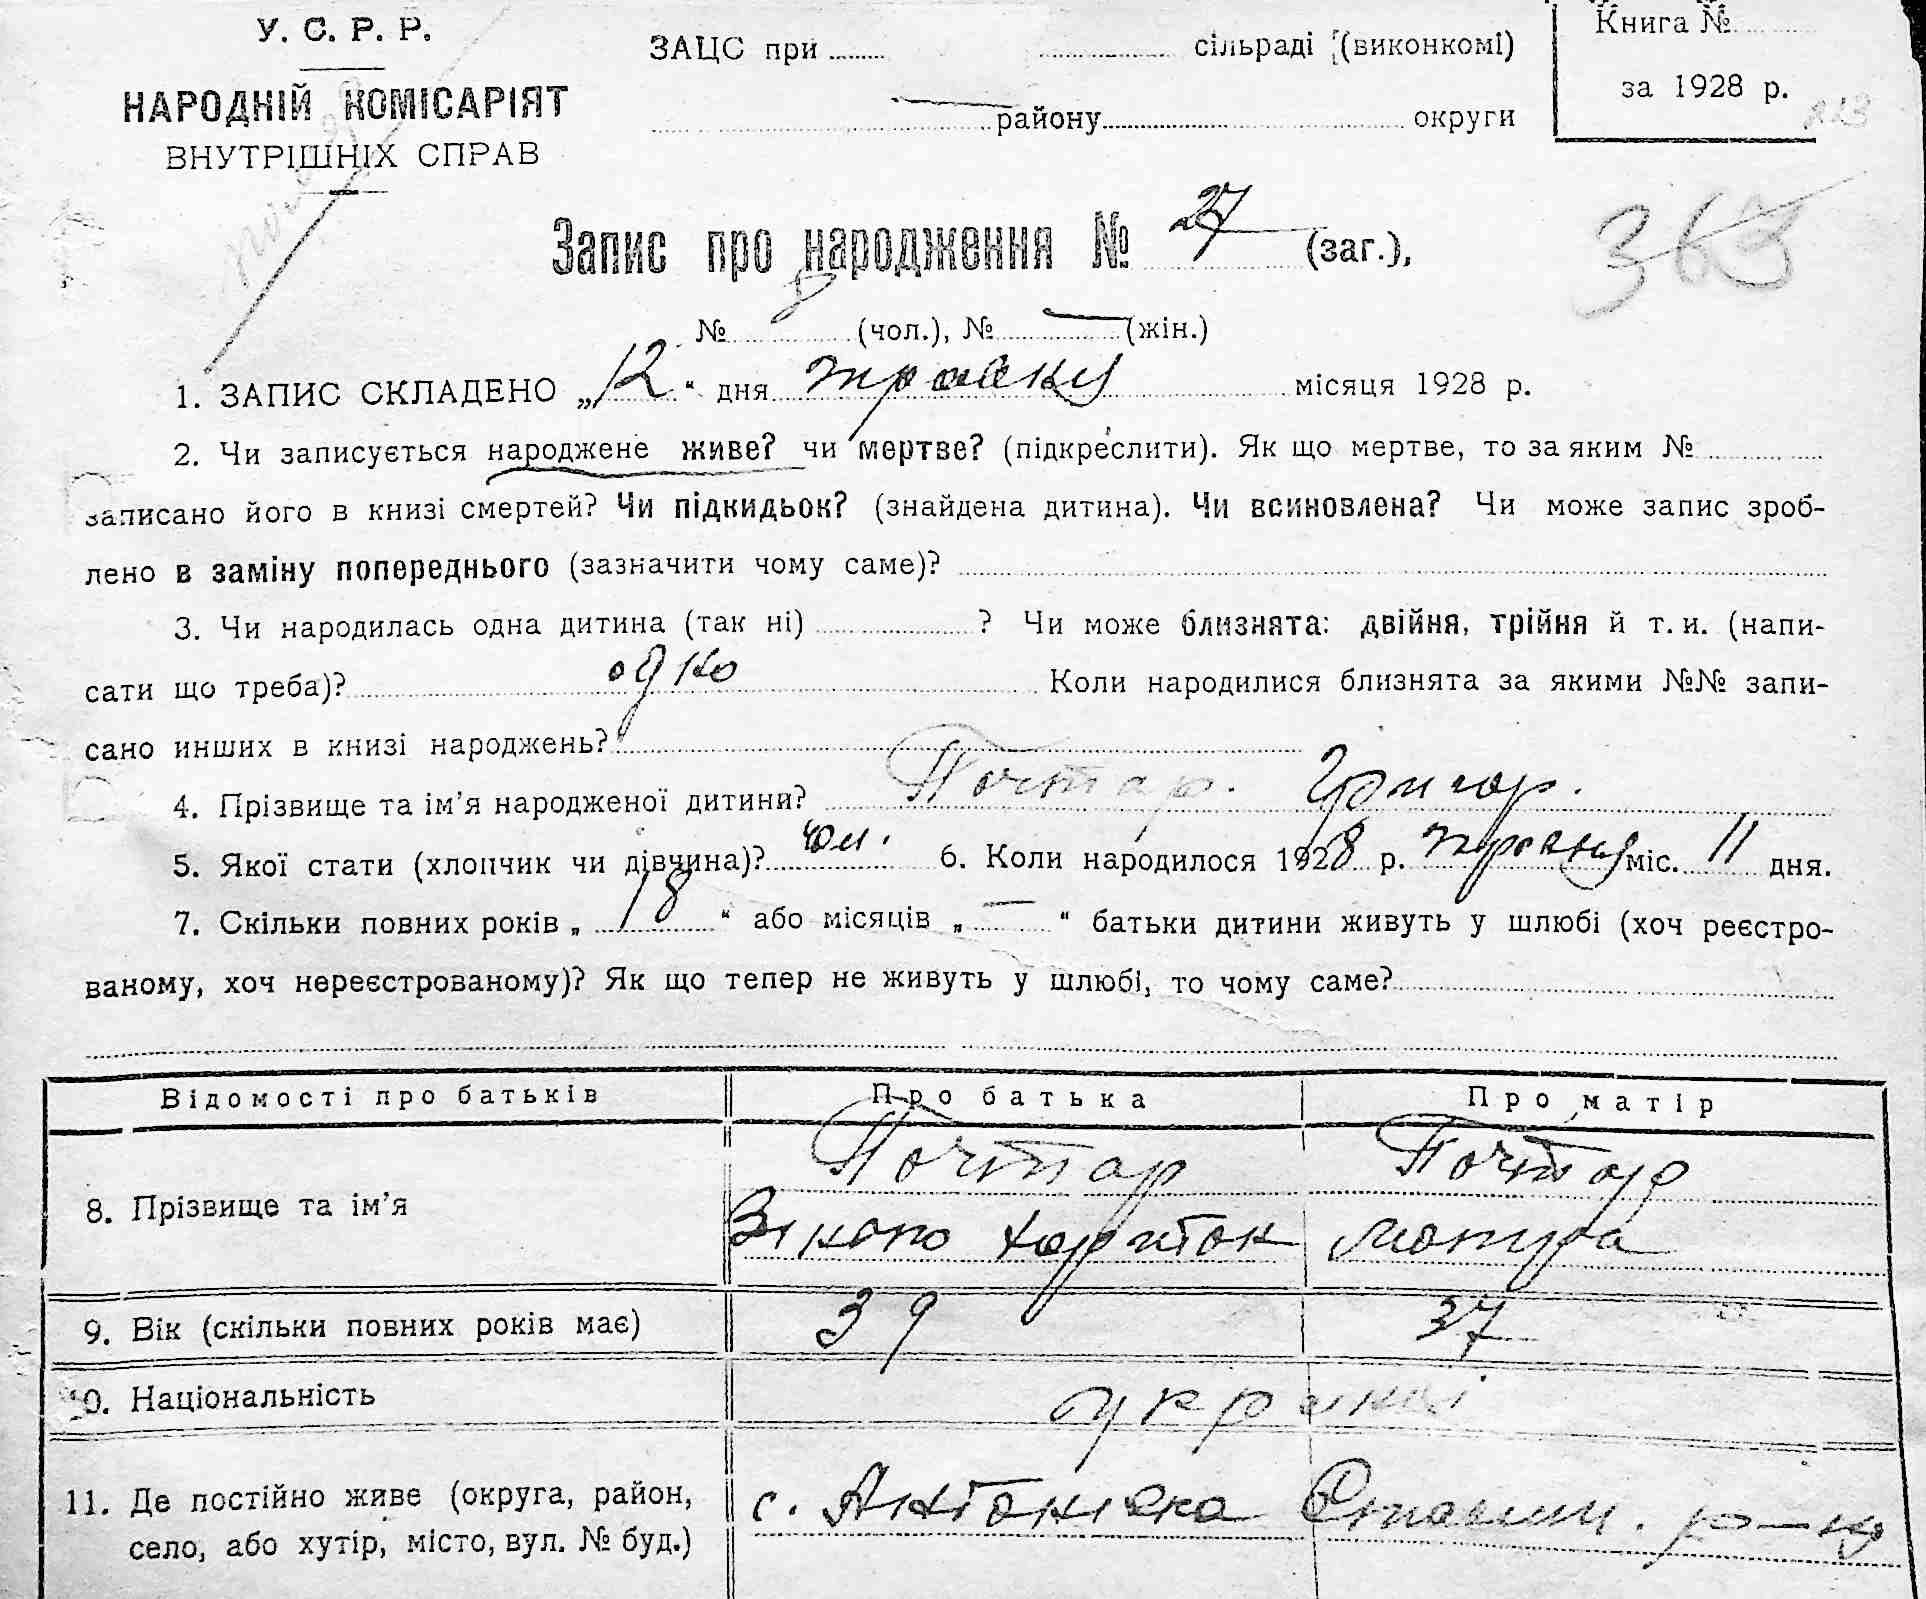 У. С. Р. Р.
НАРОДНІЙ КОМІСАРІЯТ
ВНУТРІШНІХ СПРАВ
ЗАЦС при сільраді (виконкомі)
району округи
Книга №
за 1928 р.
Запис про народження № 27 (заг.),
363
№ 8 (чол.), № — (жін.)
1. ЗАПИС СКЛАДЕНО „12“ дня травня місяця 1928 р.
2. Чи записується народжене живе? чи мертве? (підкреслити). Як що мертве, то за яким №
записано його в книзі смертей? Чи підкидьок? (знайдена дитина). Чи всиновлена? Чи може запис зроб-
лено в заміну попереднього (зазначити чому саме)?
3. Чи народилась одна дитина (так ні) ? Чи може близнята: двійня, трійня й т. и. (напи-
сати що треба)? одно Коли народилися близнята за якими №№ запи-
сано инших в книзі народжень?
4. Прізвище та ім’я народженої дитини? Почтар. Григор.
5. Якої стати (хлопчик чи дівчина)? чол. 6. Коли народилося 1928 р. травня міс. 11 дня.
7. Скільки повних років „18“ або місяців „—“ батьки дитини живуть у шлюбі (хоч реєстро-
ваному, хоч нереєстрованому)? Як що тепер не живуть у шлюбі, то чому саме?
Відомості про батьків Про батька Про матір
8. Прізвище та ім’я Почтар Почтар
Харитон Мотря
9. Вік (скільки повних років має) 39 37
10. Національність україні
11. Де постійно живе (округа, район, с. Антонівка Ставищ. р-ну
село, або хутір, місто, вул. № буд.)